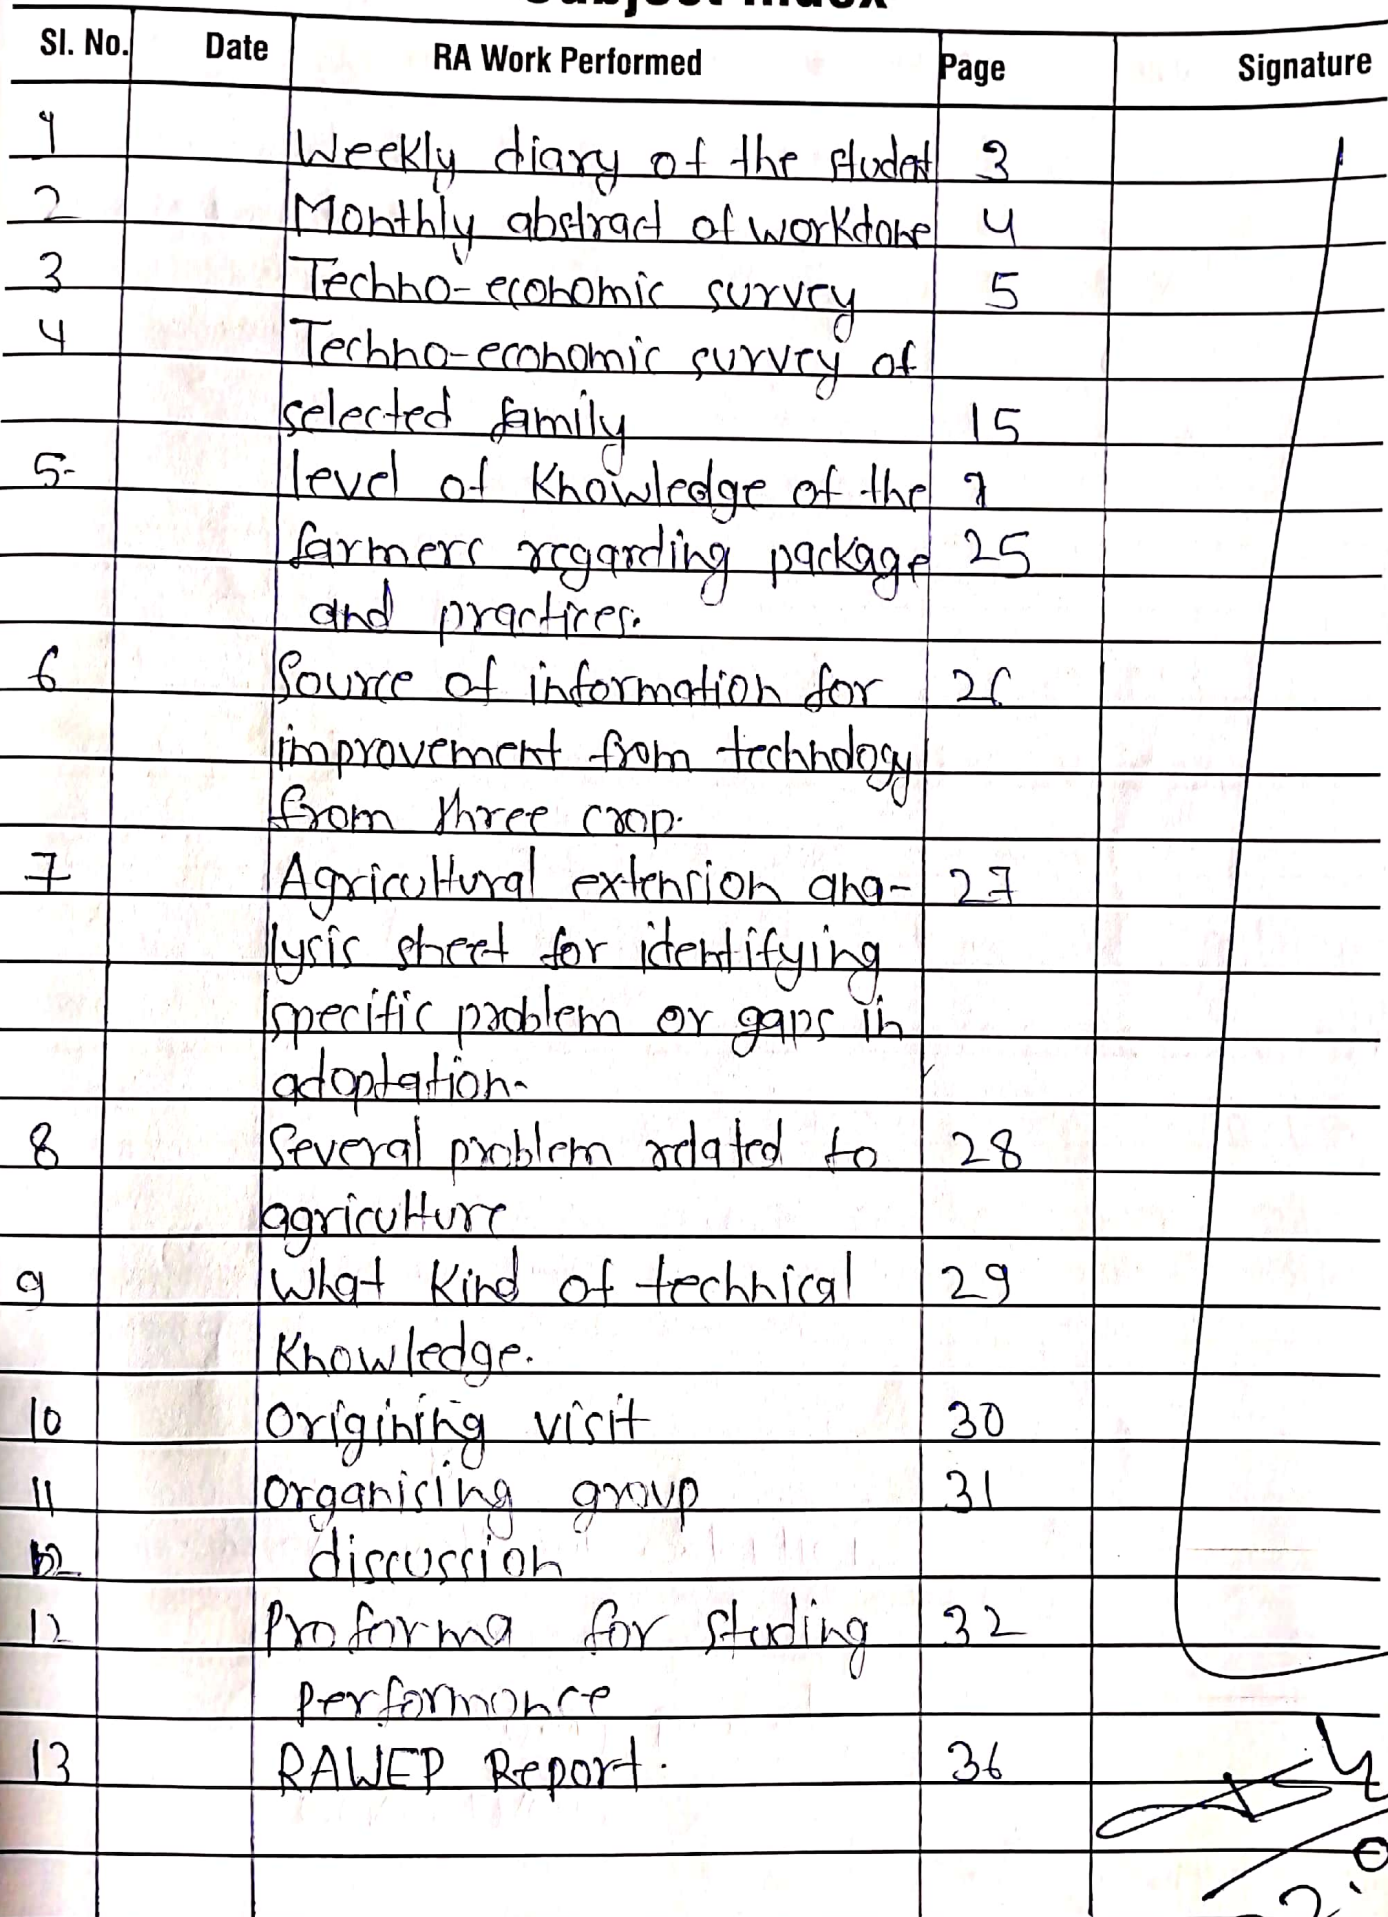 Subject Index
Sl. No. Date RA Work Performed Page Signature
1 Weekly diary of the student 3
2 Monthly abstract of workdone 4
3 Techno-economic survey 5
4 Techno-economic survey of
selected family 15
5- level of Knowledge of the
farmers regarding package 25
and practices.
6 Source of information for 26
improvement from technology
from three crop.
7 Agricultural extension ana- 27
lysis sheet for identifying
specific problem or gaps in
adoptation-
8 Several problem related to 28
agriculture
9 What Kind of technical 29
Knowledge.
10 Origining visit 30
11 Organising group 31
discussion
12 Proforma for studing 32
performance
13 RAWEP Report. 36